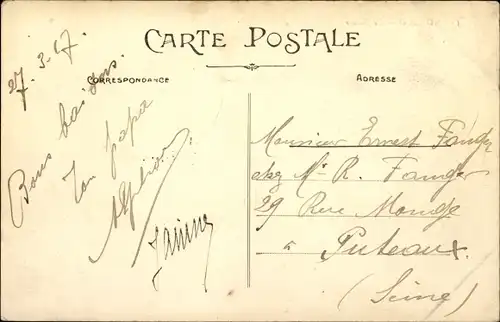 CARTE POSTALE
CORRESPONDANCE
ADRESSE
27.3.17
Bons baisers
Ton papa
Janine
Monsieur Ernest Fanger
chez Mr R. Fanger
29 Rue Monge
à Puteaux.
(Seine)